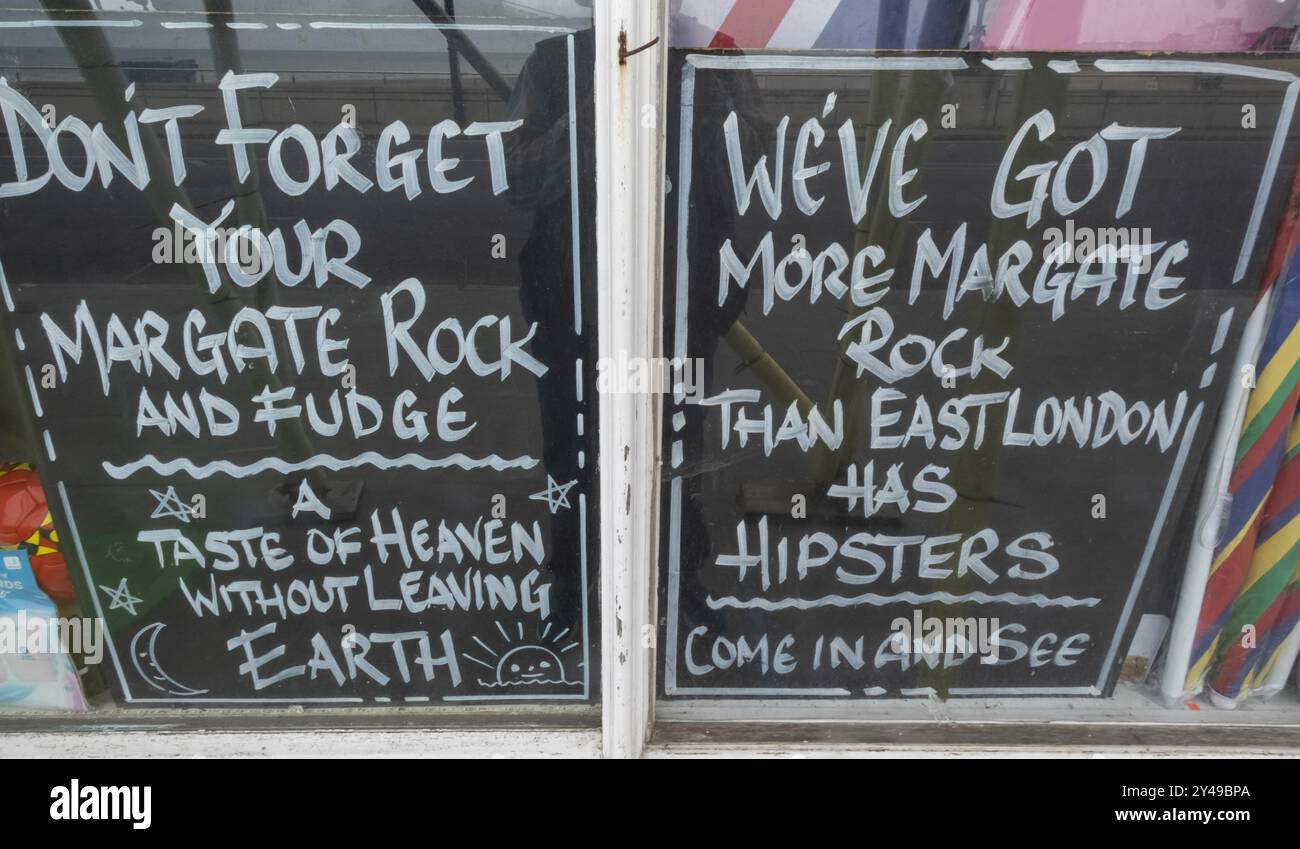 DON'T FORGET
YOUR
MARGATE ROCK
AND FUDGE
A
TASTE OF HEAVEN
WITHOUT LEAVING
EARTH
WE'VE GOT
MORE MARGATE
ROCK
THAN EAST LONDON
HAS
HIPSTERS
COME IN AND SEE
alamy
Image ID: 2Y49BPA
www.alamy.com